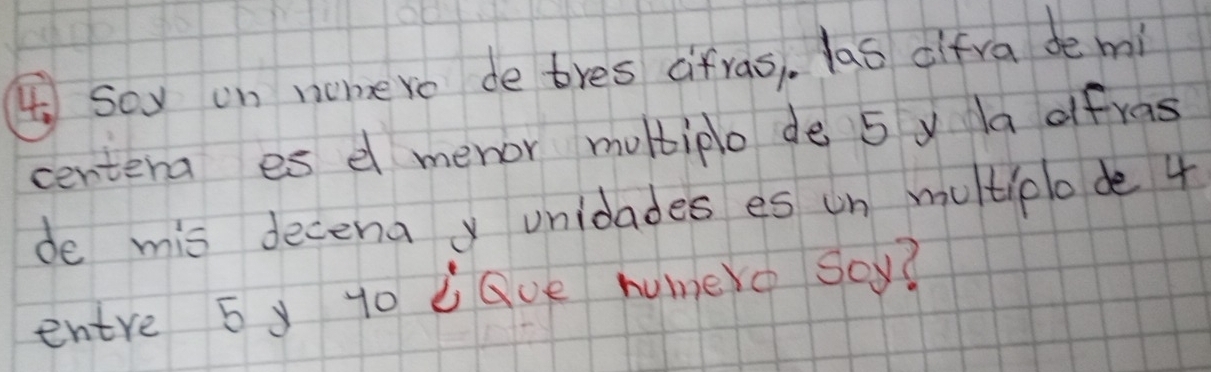 4. Soy un numero de tres cifras, las cifra de mi
centena es el menor multiplo de 5 y la cifras
de mis decena y unidades es un multiplo de 4
entre 5 y 10 ¿Que numero Soy?